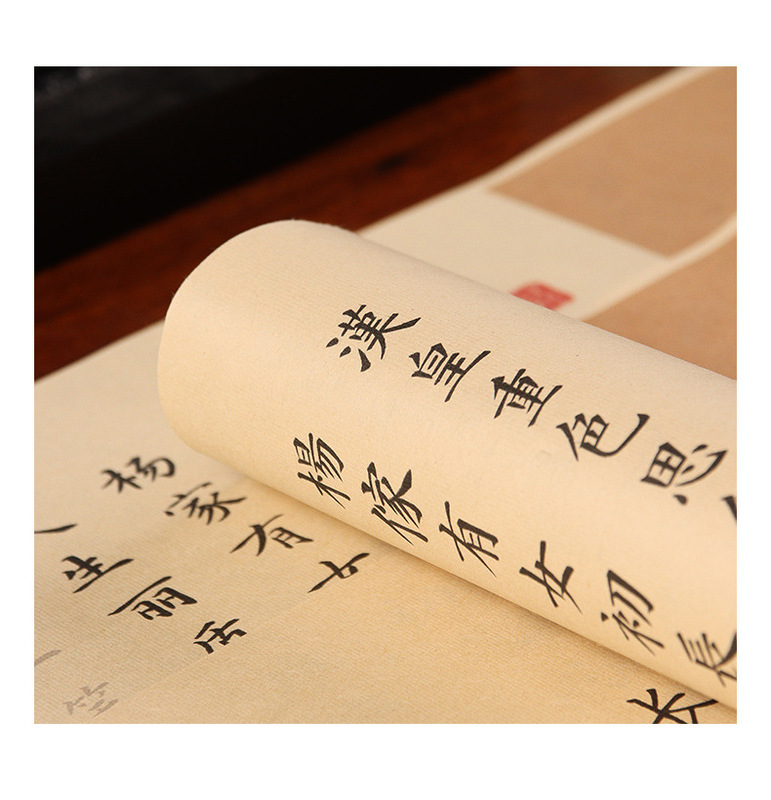 漢皇重色思
楊傢有女初長
杨家有女
生丽